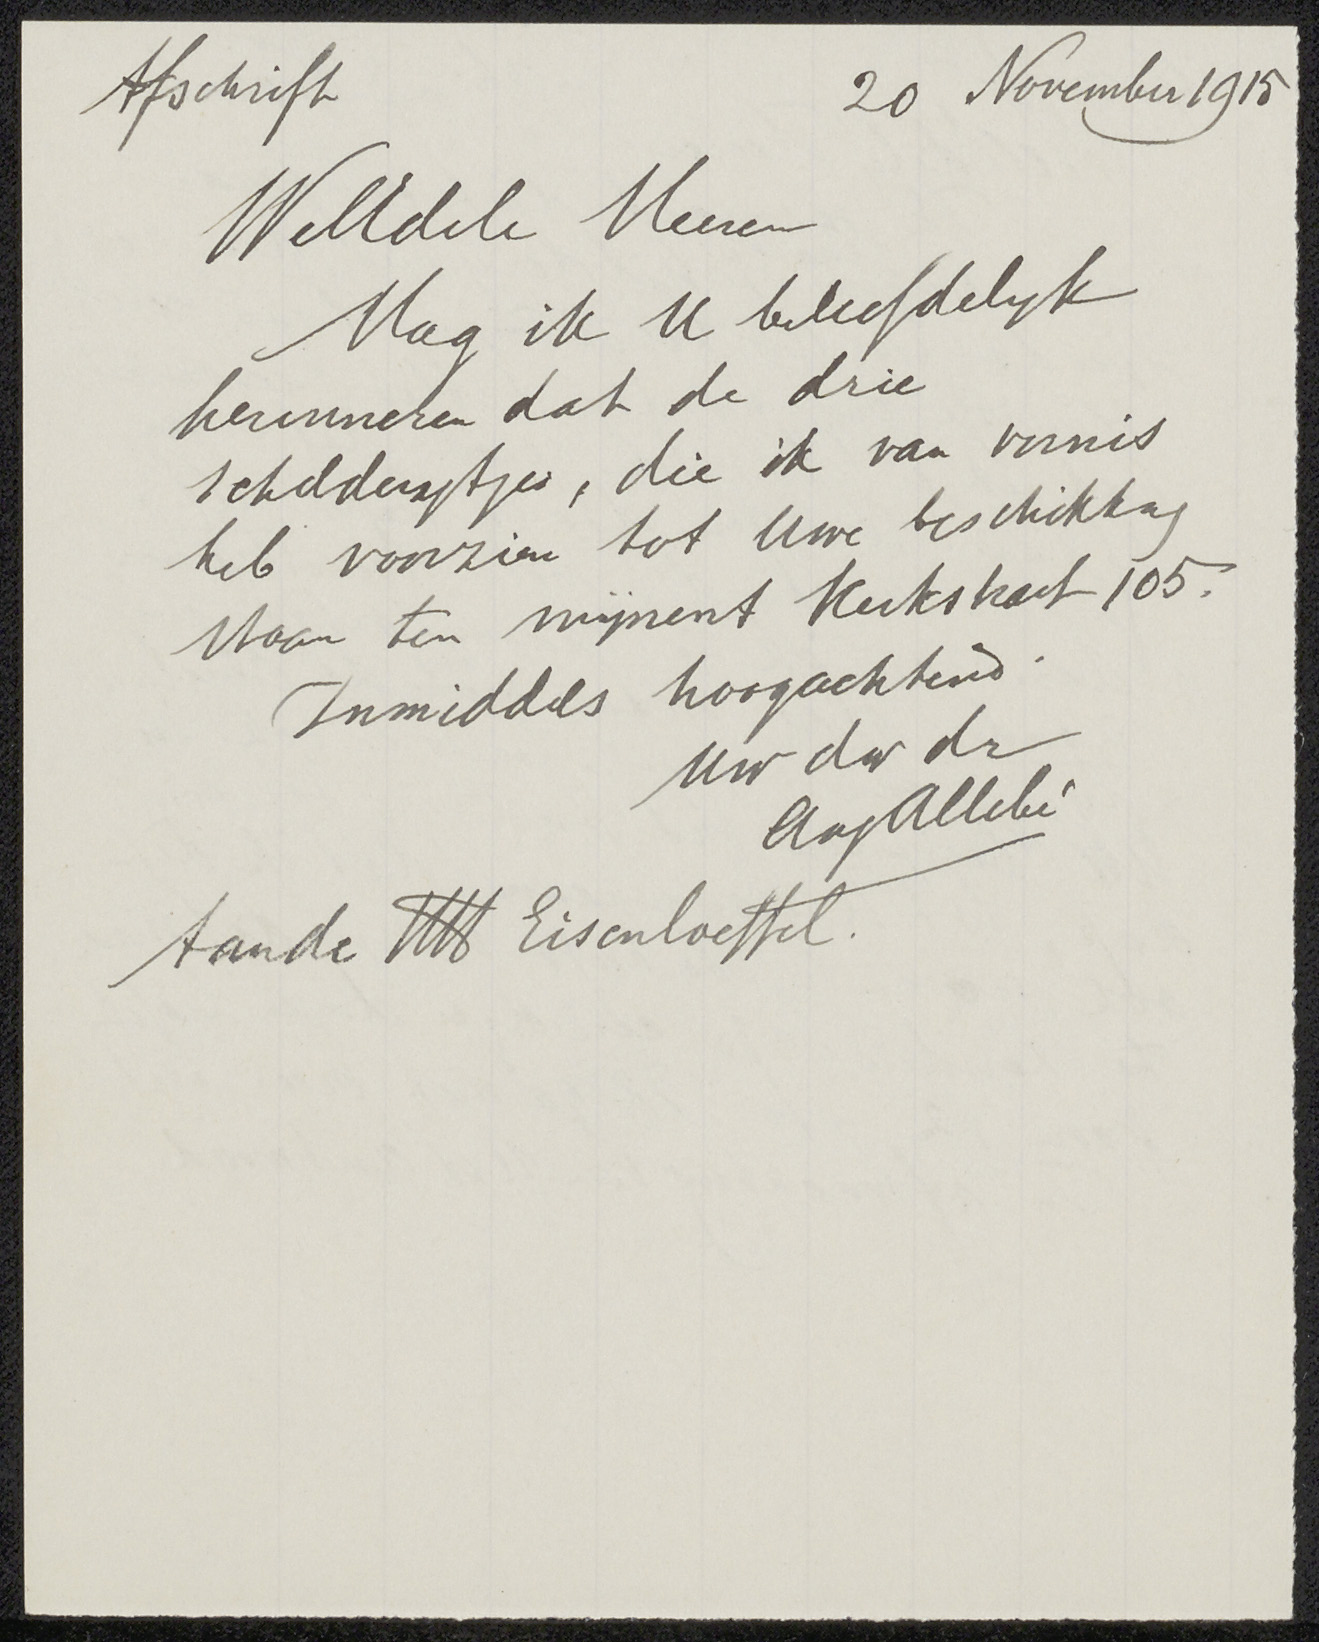 Afschrift 20 November 1915
WelEdele Heeren
Mag ik U beleefdelijk
herinneren dat de drie
schilderijtjes, die ik van vernis
heb voorzien tot Uwe beschikking
staan ten mijnent Kerkstraat 105.
Inmiddels hoogachtend.
Uw dw dr
Aug Allebé
Aan de HH Eisenloeffel.